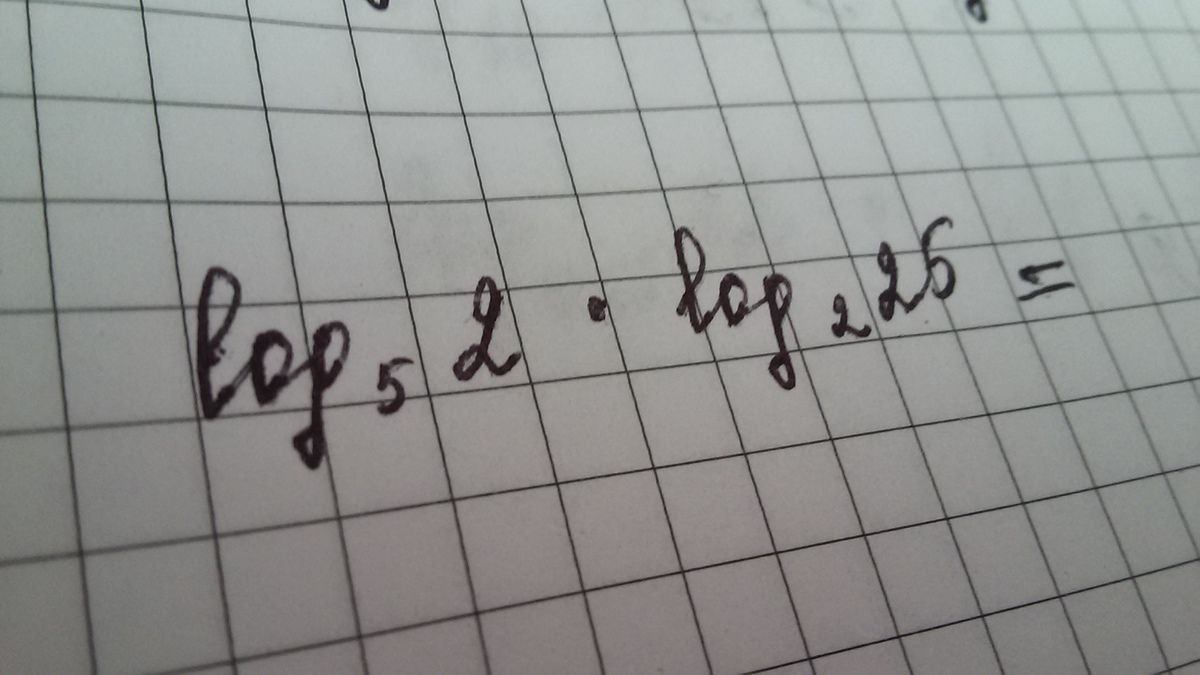 log₅ 2 · log₂ 25 =